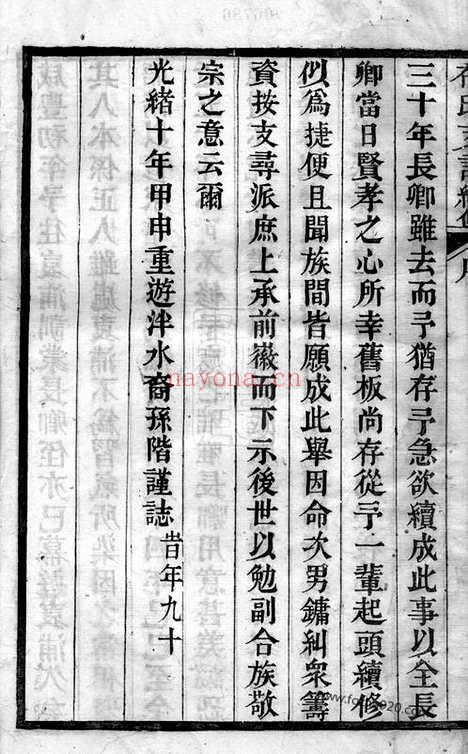 三十年長卿雖去而予猶存予急欲續成此事以全長
卿當日賢孝之心所幸舊板尚存從予一輩起頭續修
似為捷便且聞族間皆願成此舉因命次男鏞糾衆籌
資按支尋派庶上承前徽而下示後世以勉副合族敬
宗之意云爾
光緒十年甲申重遊泮水裔孫階謹誌 旹年九十
nayona.cn